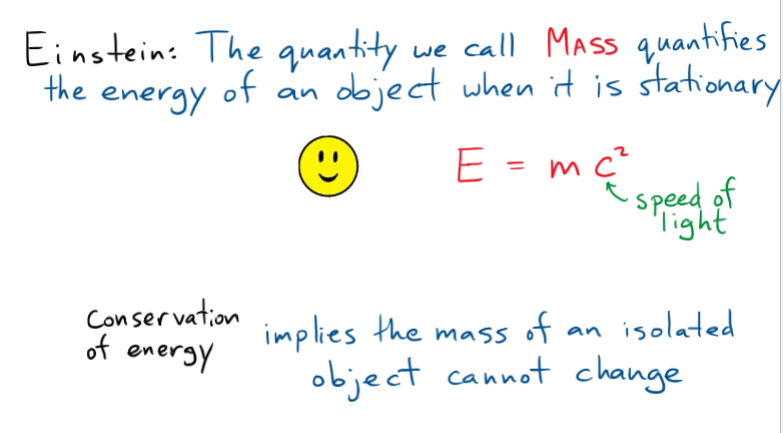 Einstein: The quantity we call MASS quantifies
the energy of an object when it is stationary
E = mc²
speed of
light
Conservation
of energy
implies the mass of an isolated
object cannot change